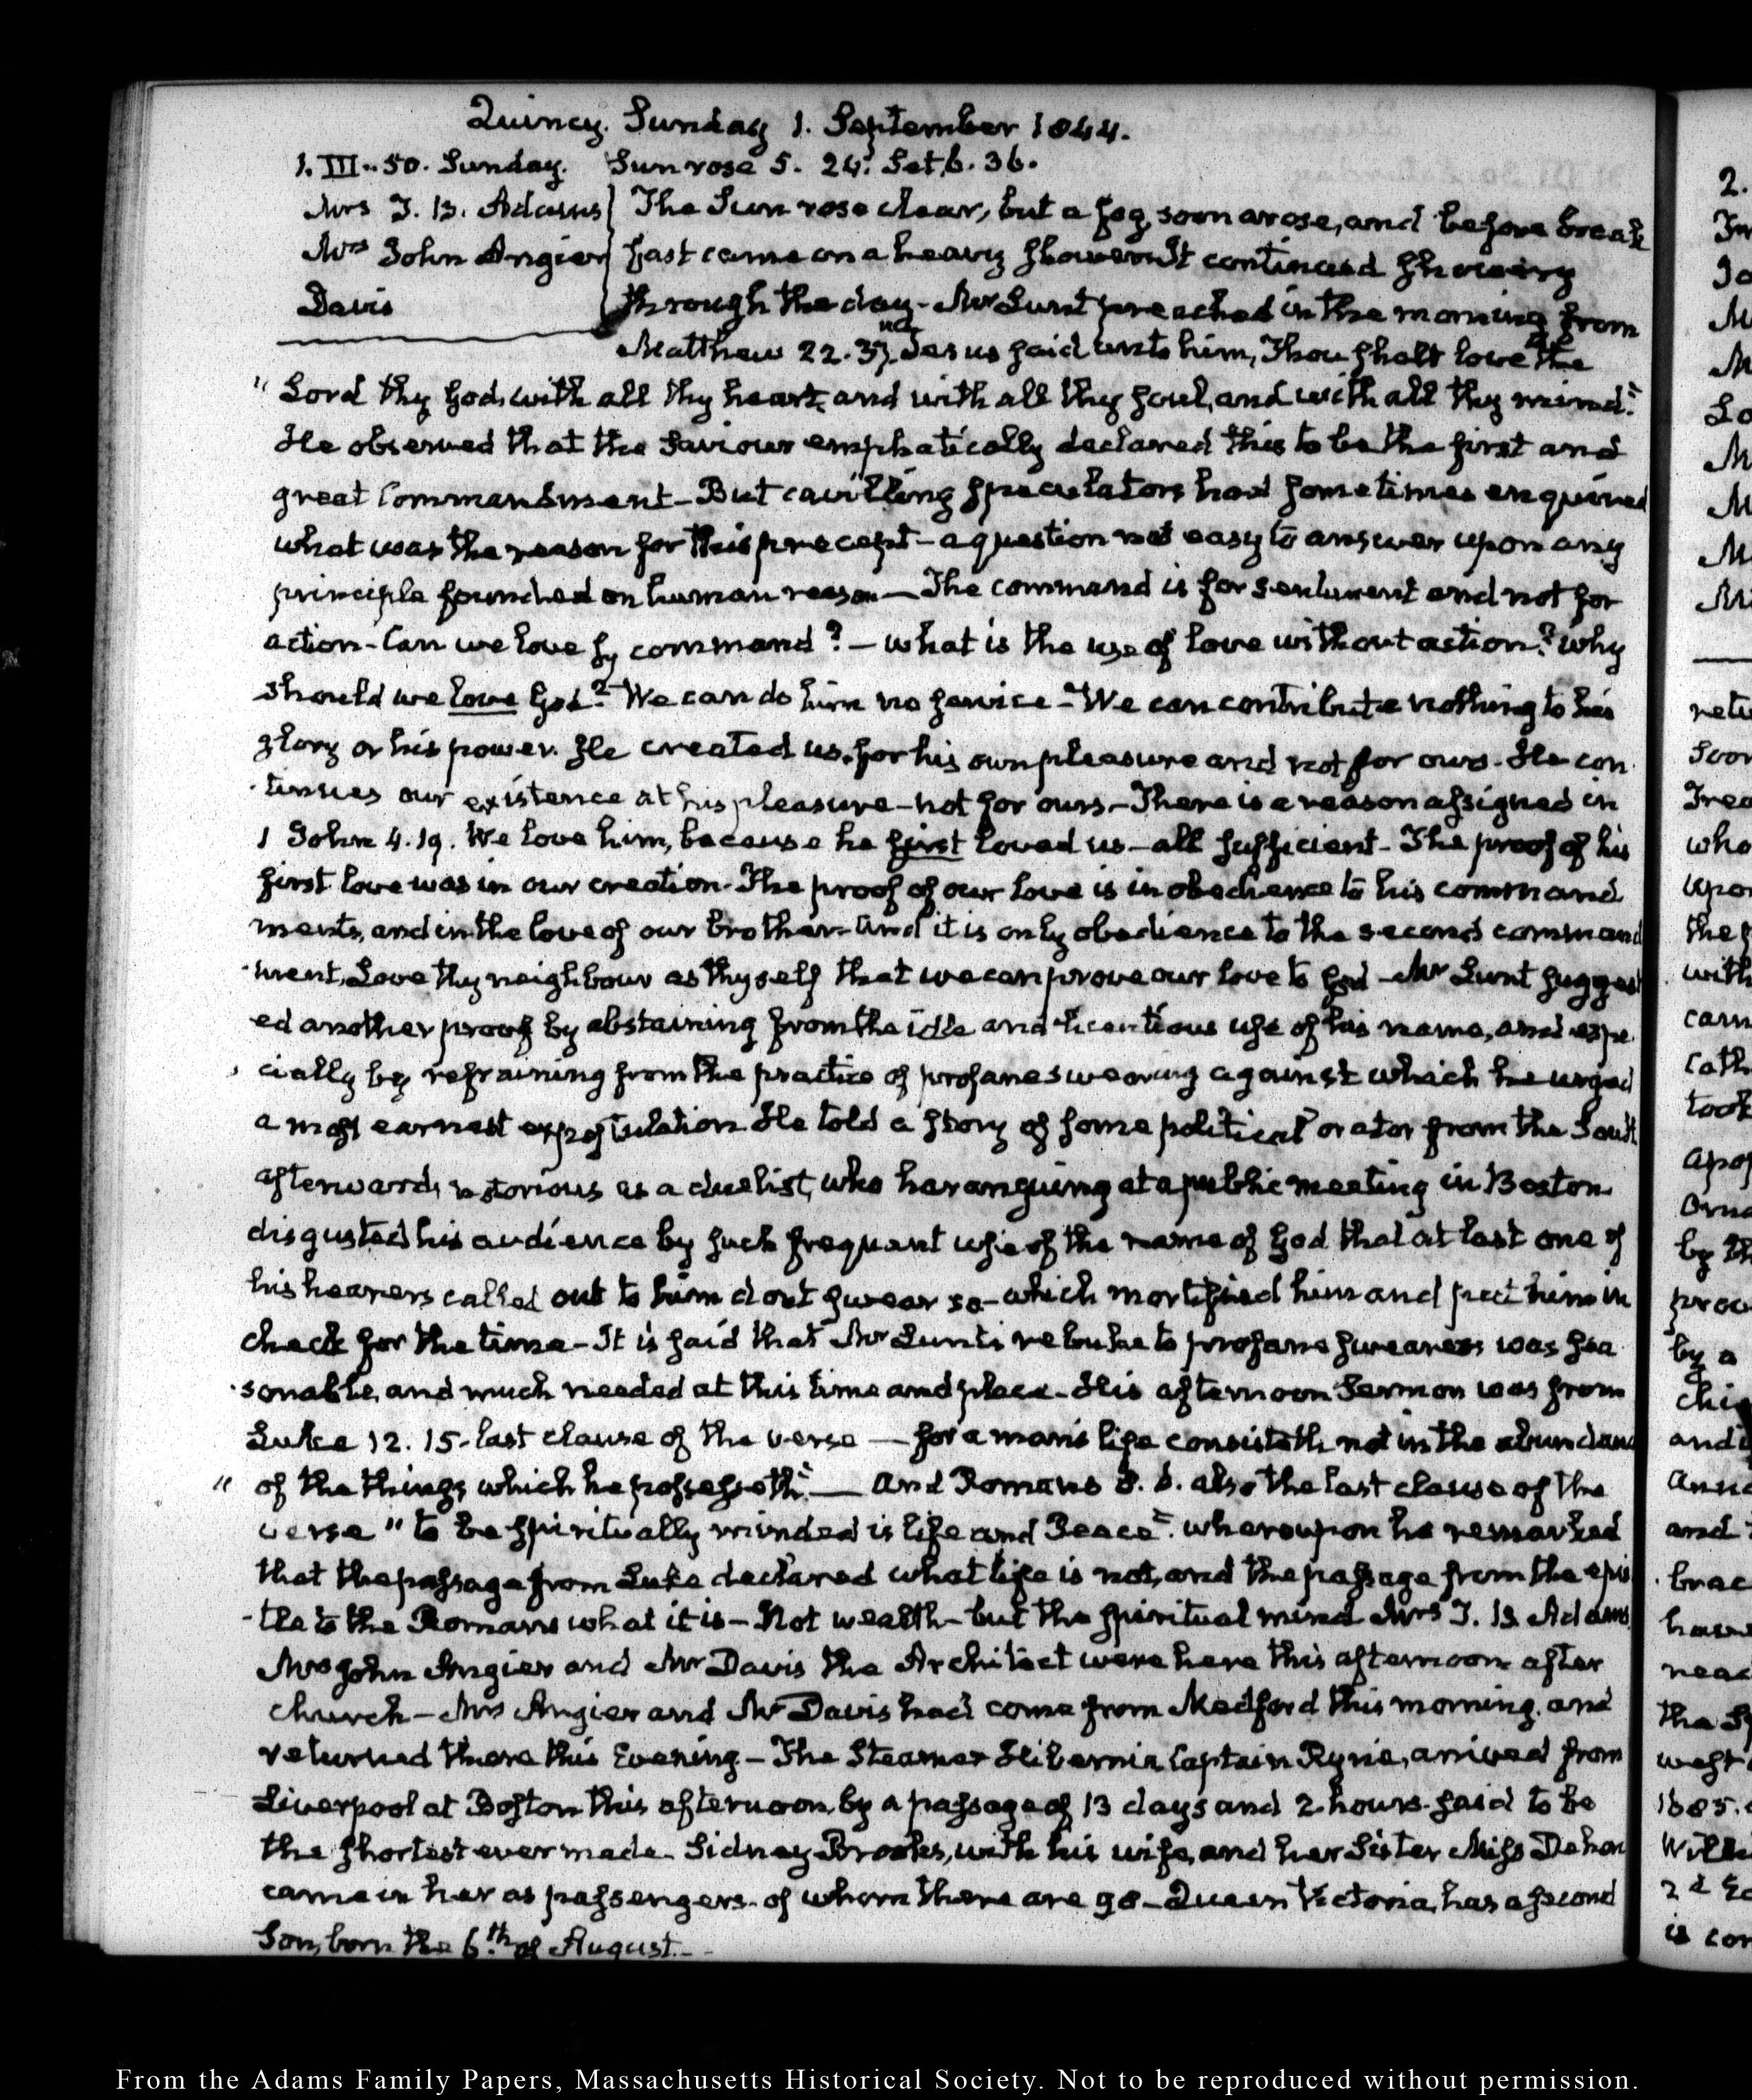 Quincy. Sunday 1. September 1844.
1. III.. 50. Sunday. Sun rose 5. 24. Set, 6. 36.
Mrs T. B. Adams The Sun rose clear, but a fog soon arose, and before break
Mrs John Angier fast came on a heavy shower. It continued showery
Davis through the day - Mr Lunt preached in the morning from
Matthew 22. 37. Jesus said unto him, Thou shalt love the
" Lord thy God, with all thy heart, and with all thy soul, and with all thy mind."
He observed that the Saviour emphatically declared this to be the first and
great Commandment - But cavilling speculators had sometimes enquired
what was the reason for this precept - a question not easy to answer upon any
principle founded on human reason — The command is for sentiment and not for
action - Can we love by command? - what is the use of love without action? why
should we love God? We can do him no service - We can contribute nothing to his
glory or his power. He created us for his own pleasure and not for ours. He con
-tinues our existence at his pleasure - not for ours - There is a reason assigned in
1 John 4. 19. We love him, because he first loved us - all sufficient - The proof of his
first love was in our creation - The proof of our love is in obedience to his command
ments, and in the love of our brother - and it is only obedience to the second command
-ment, Love thy neighbour as thyself that we can prove our love to God - Mr Lunt suggest
ed another proof by abstaining from the idle and licentious use of his name, and espe
cially by refraining from the practice of profane swearing against which he urged
a most earnest expostulation He told a story of some political orator from the South
afterwards notorious as a duelist, who haranguing at a public meeting in Boston
disgusted his audience by such frequent use of the name of God that at last one of
his hearers called out to him dont swear so - which mortified him and put him in
check for the time - It is said that Mr Lunt's rebuke to profane swearers was sea
-sonable, and much needed at this time and place - His afternoon Sermon was from
Luke 12. 15. last clause of the verse — for a man's life consisteth not in the abundance
" of the things which he possesseth." — and Romans 8. 6. also the last clause of the
verse " to be spiritually minded is life and Peace". whereupon he remarked
that the passage from Luke declared what life is not, and the passage from the epis
-tle to the Romans what it is - Not wealth - but the spiritual mind Mrs T. B. Adams
Mrs John Angier and Mr Davis the Architect were here this afternoon after
church - Mrs Angier and Mr Davis had come from Medford this morning, and
returned there this Evening - The Steamer Hibernia, Captain Ryrie, arrived from
Liverpool at Boston this afternoon, by a passage of 13 days and 2 hours - said to be
the shortest ever made. Sidney Brooks, with his wife, and her Sister Miss Dehon
came in her as passengers - of whom there are 98 - Queen Victoria, has a second
Son, born the 6th of August. -
From the Adams Family Papers, Massachusetts Historical Society. Not to be reproduced without permission.